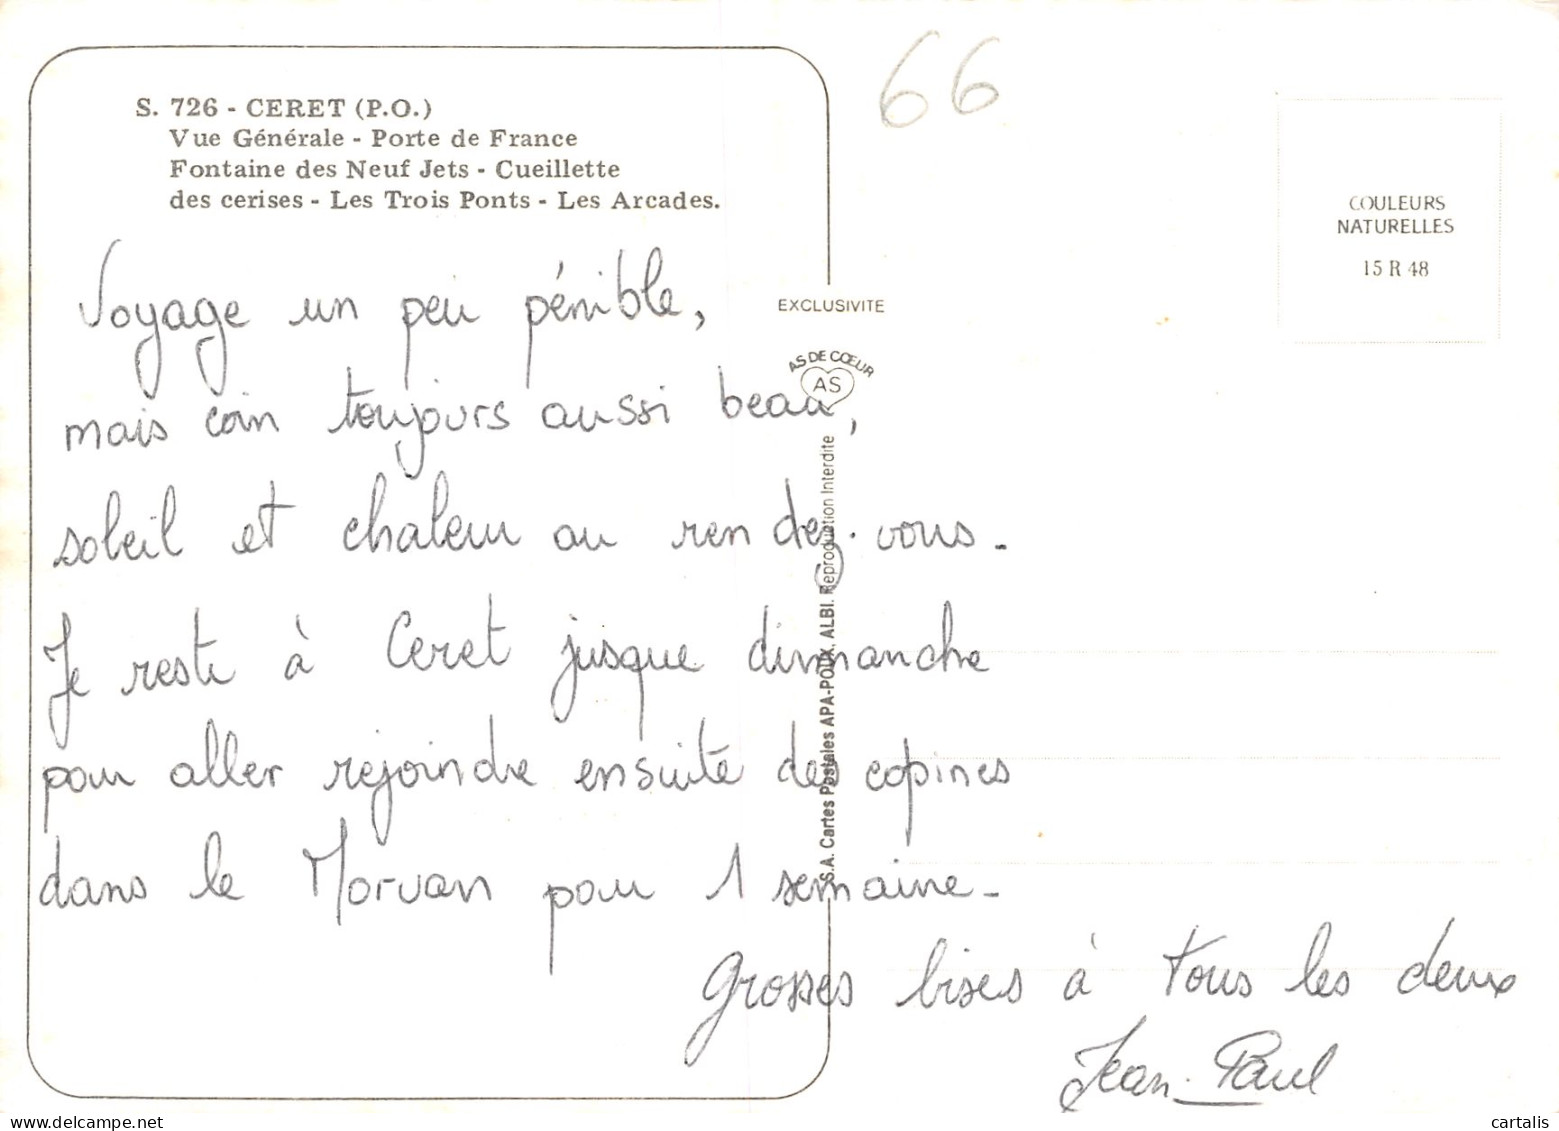 66
S. 726 - CERET (P.O.)
Vue Générale - Porte de France
Fontaine des Neuf Jets - Cueillette
des cerises - Les Trois Ponts - Les Arcades.
COULEURS
NATURELLES
15 R 48
EXCLUSIVITE
AS DE CŒUR
AS
S.A. Cartes Postales APA-POUX, ALBI. Reproduction Interdite
Voyage un peu pénible,
mais coin toujours aussi beau,
soleil et chaleur au rendez-vous.
Je reste à Ceret jusque dimanche
pour aller rejoindre ensuite des copines
dans le Morvan pour 1 semaine.
Grosses bises à tous les deux
Jean-Paul
delcampe.net
cartalis